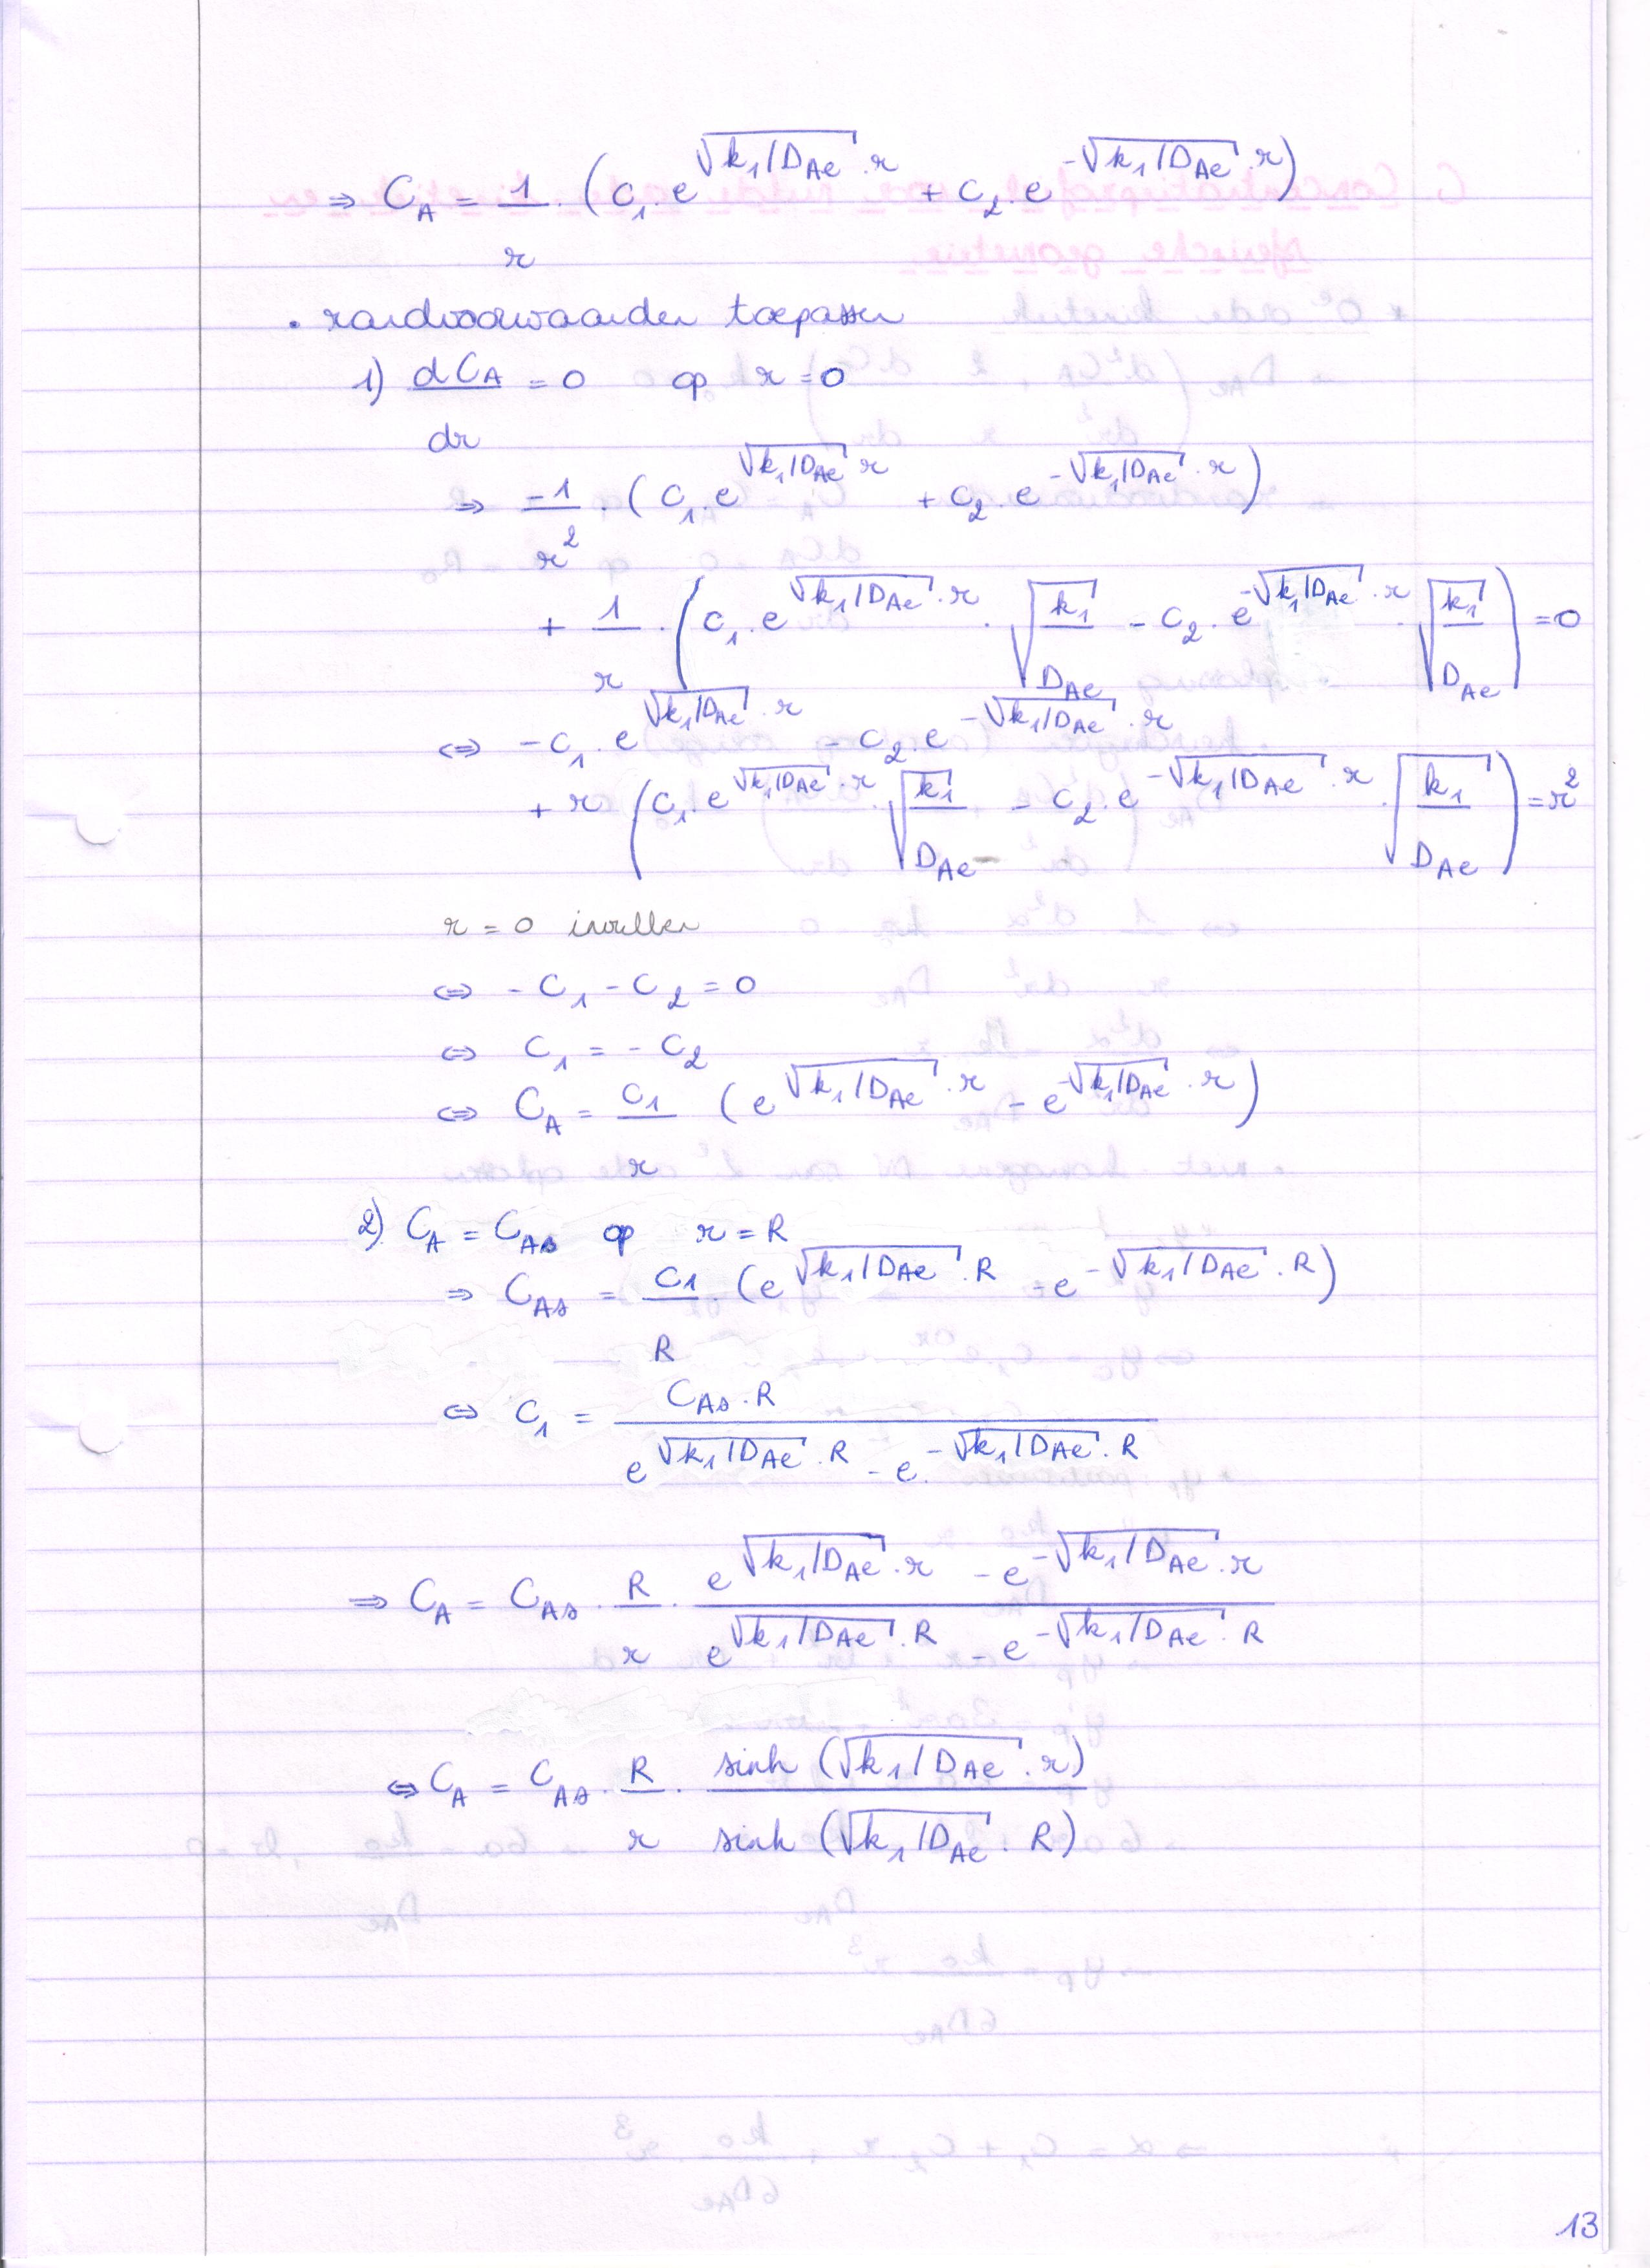 ⇒ C_A = 1/r · (c₁·e^(√(k₁/D_Ae)·r) + c₂·e^(-√(k₁/D_Ae)·r))
• randvoorwaarden toepassen
1) dC_A/dr = 0 op r = 0
⇒ -1/r² · (c₁·e^(√(k₁/D_Ae)·r) + c₂·e^(-√(k₁/D_Ae)·r))
+ 1/r · (c₁·e^(√(k₁/D_Ae)·r) · √(k₁/D_Ae) - c₂·e^(-√(k₁/D_Ae)·r) · √(k₁/D_Ae)) = 0
⇔ -c₁·e^(√(k₁/D_Ae)·r) - c₂·e^(-√(k₁/D_Ae)·r)
+ r (c₁·e^(√(k₁/D_Ae)·r) √(k₁/D_Ae) - c₂·e^(-√(k₁/D_Ae)·r) · √(k₁/D_Ae)) = r²
r = 0 invullen
⇔ -c₁ - c₂ = 0
⇔ c₁ = -c₂
⇔ C_A = c₁/r (e^(√(k₁/D_Ae)·r) - e^(-√(k₁/D_Ae)·r))
2) C_A = C_As op r = R
⇒ C_As = c₁/R · (e^(√(k₁/D_Ae)·R) - e^(-√(k₁/D_Ae)·R))
⇔ c₁ = (C_As·R)/(e^(√(k₁/D_Ae)·R) - e^(-√(k₁/D_Ae)·R))
⇒ C_A = C_As · R/r · (e^(√(k₁/D_Ae)·r) - e^(-√(k₁/D_Ae)·r))/(e^(√(k₁/D_Ae)·R) - e^(-√(k₁/D_Ae)·R))
⇔ C_A = C_As · R/r · sinh (√(k₁/D_Ae)·r)/sinh (√(k₁/D_Ae)·R)
13